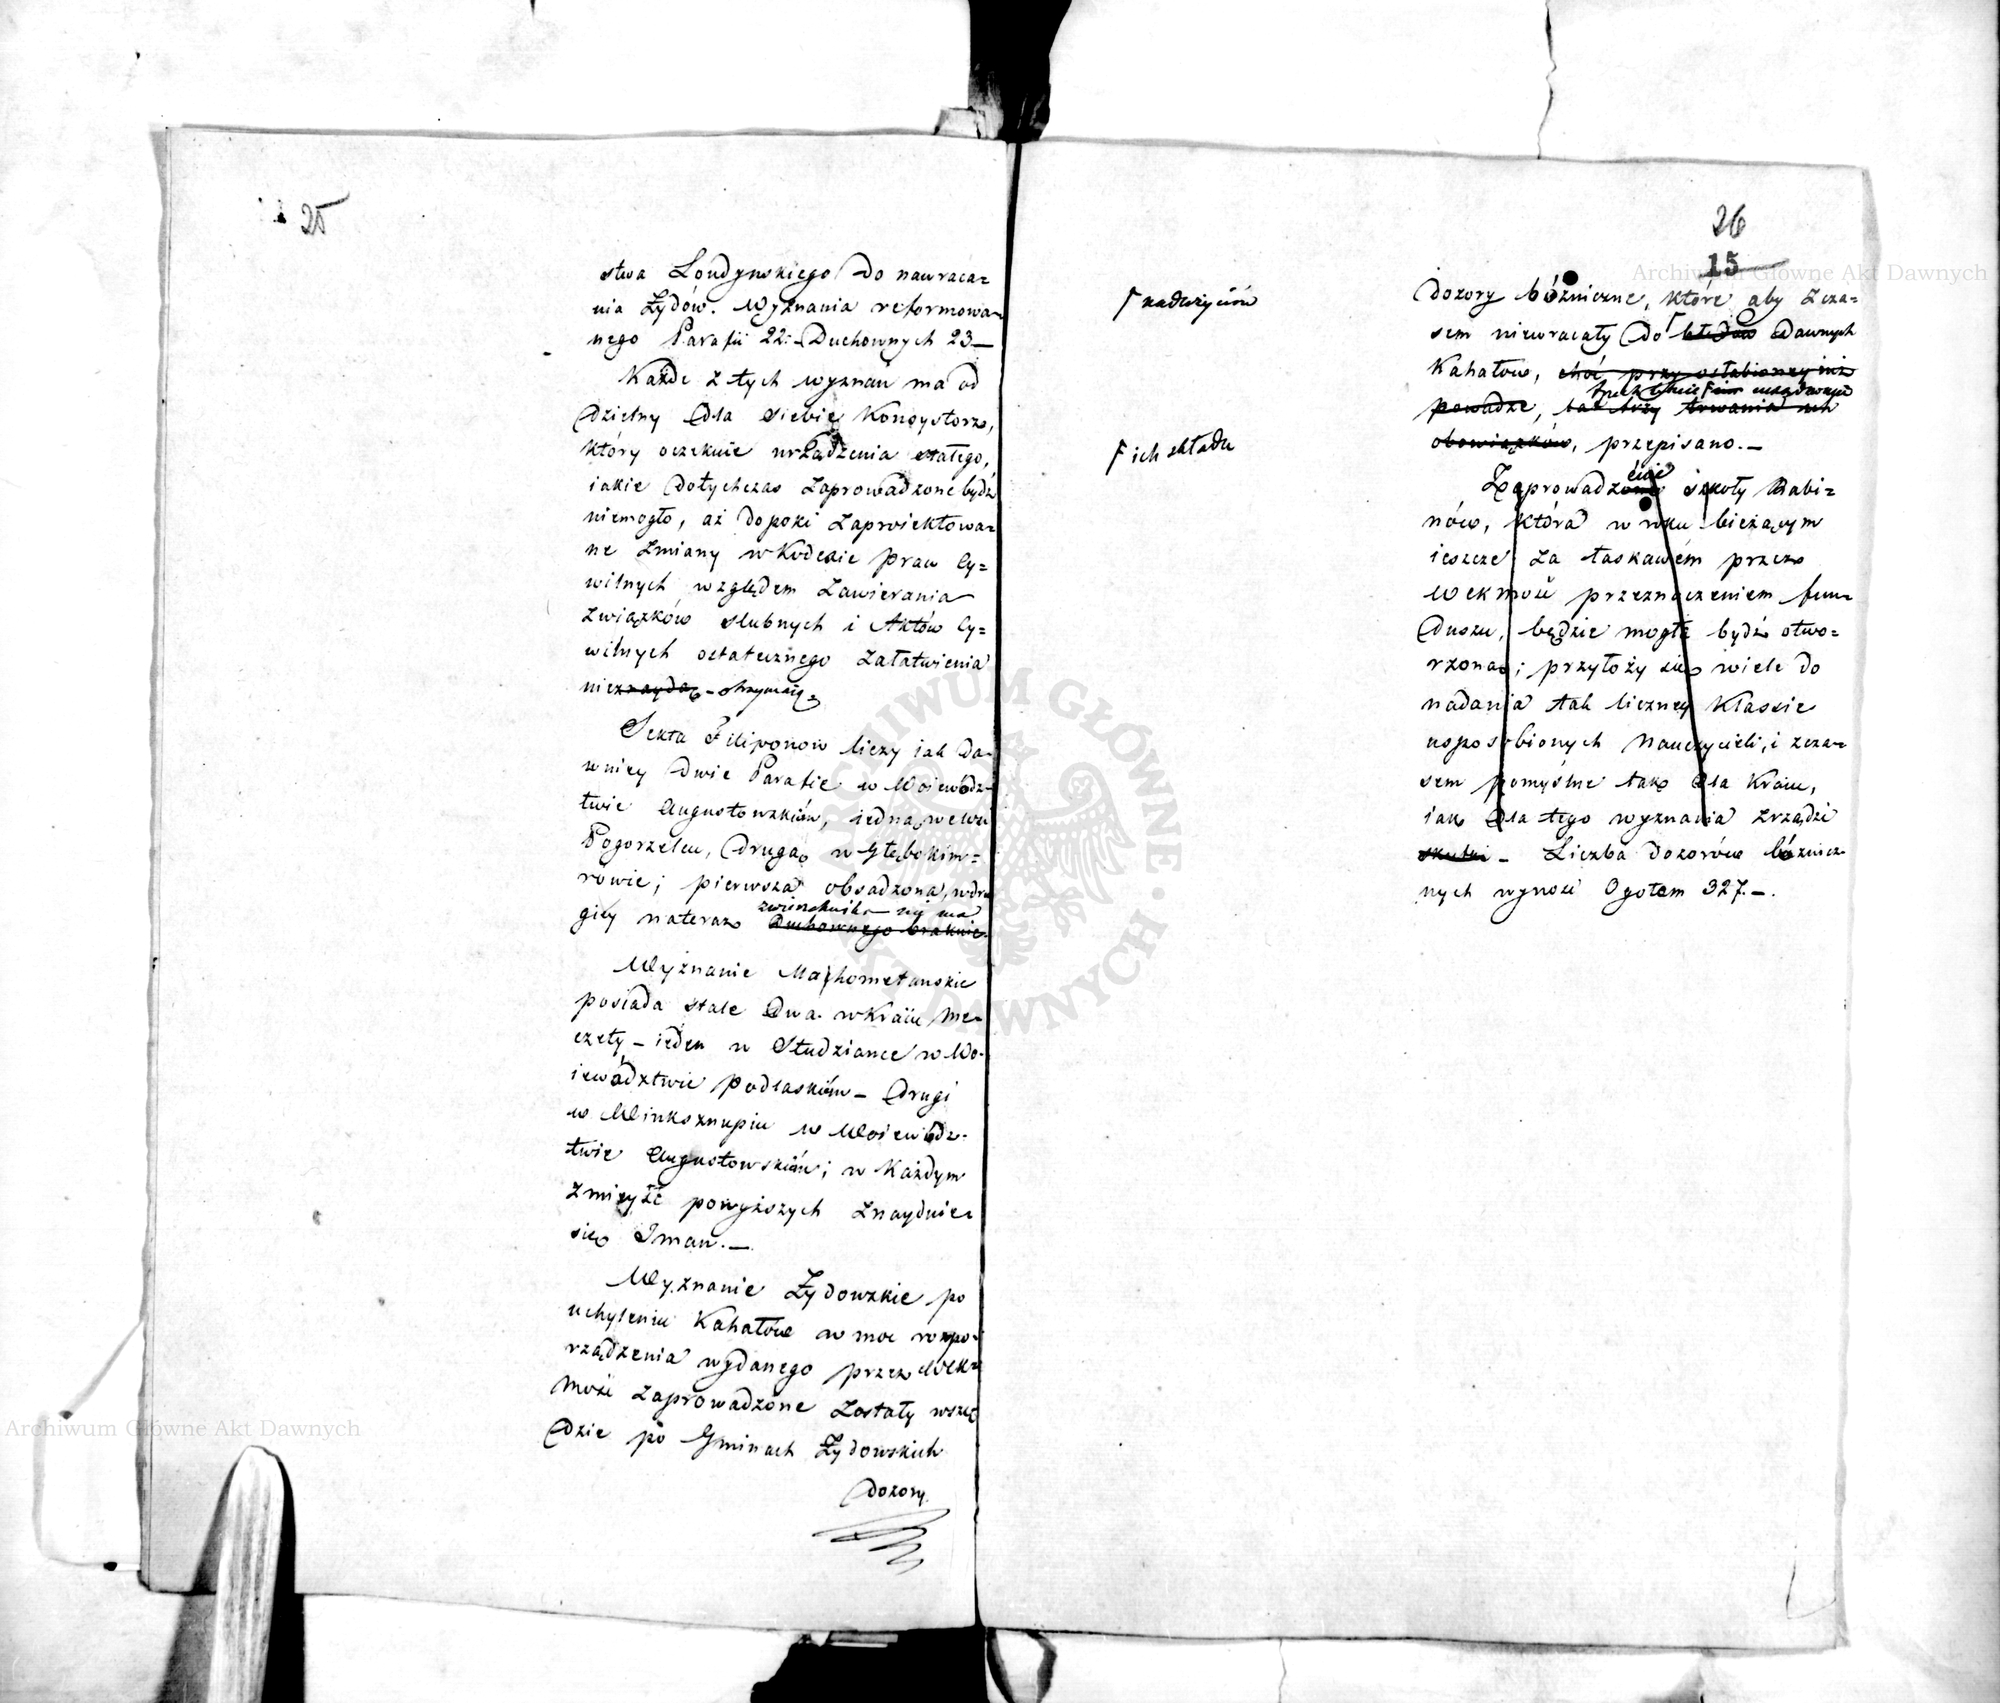 25
stwa Londynskiego do nawraca=
nia Żydów. Wyznania reformowa=
nego Parafii 22: Duchownych 23—
Każde z tych wyznań ma od
dzielny dla siebie Konsystorz,
który oczekuie urządzenia stałego,
iakie dotychczas zaprowadzone bydź
niemogło, aż dopoki zaproiektowa=
ne zmiany w Kodexie praw Cy=
wilnych względem zawierania
związków slubnych i Aktów Cy=
wilnych ostatecznego załatwienia
nieznaydą - otrzymaią.
Sekta Filiponow liczy iak da=
wniey dwie Parafie w Wojewódz=
twie Augustowskiém, iedną we wsi
Pogorzelcu, drugą w Głębokim=
rowie; pierwsza obsadzona, w dru
giey nateraz Duchownego braknie.
zwierzchnika niema
Wyznanie Mahometanskie
posiada stale dwa w Kraiu Me=
czety – ieden w Studziance w Wo=
iewództwie Podlaskiém – drugi
w Winksznupiu w Woiewódz=
twie Augustowskiém; w każdym
z mieysc powyższych znayduie
się Iman.—
Wyznanie Żydowskie po
uchyleniu Kahałów w moc rozpo=
rządzenia wydanego przez WCK=
Mość zaprowadzone zostały wszę
dzie po Gminach Żydowskich
dozory
26
15
Archiwum Główne Akt Dawnych
nadużyciów
ich składu
dozory bóżnicze, które aby z cza=
sem niewracały do błędów dawnych
Kahałów, choć przy osłabioney iuż
powadze, trwania ich
obowiązków, przepisano.—
Zaprowadzone szkoły Rabi=
nów, która w roku bieżącym
ieszcze za łaskawém przez
WCKMość przeznaczeniem fun=
duszu, będzie mogła bydź otwo=
rzoną; przyłoży się wiele do
nadania tak liczney Klassie
usposobionych Nauczycieli, i z cza=
sem pomyślne tak dla Kraiu,
iak dla tego wyznania zrządzi
skutki – Liczba dozorów bóżnicz=
nych wynosi Ogołem 327.—.
ARCHIWUM GŁÓWNE AKT DAWNYCH
Archiwum Główne Akt Dawnych